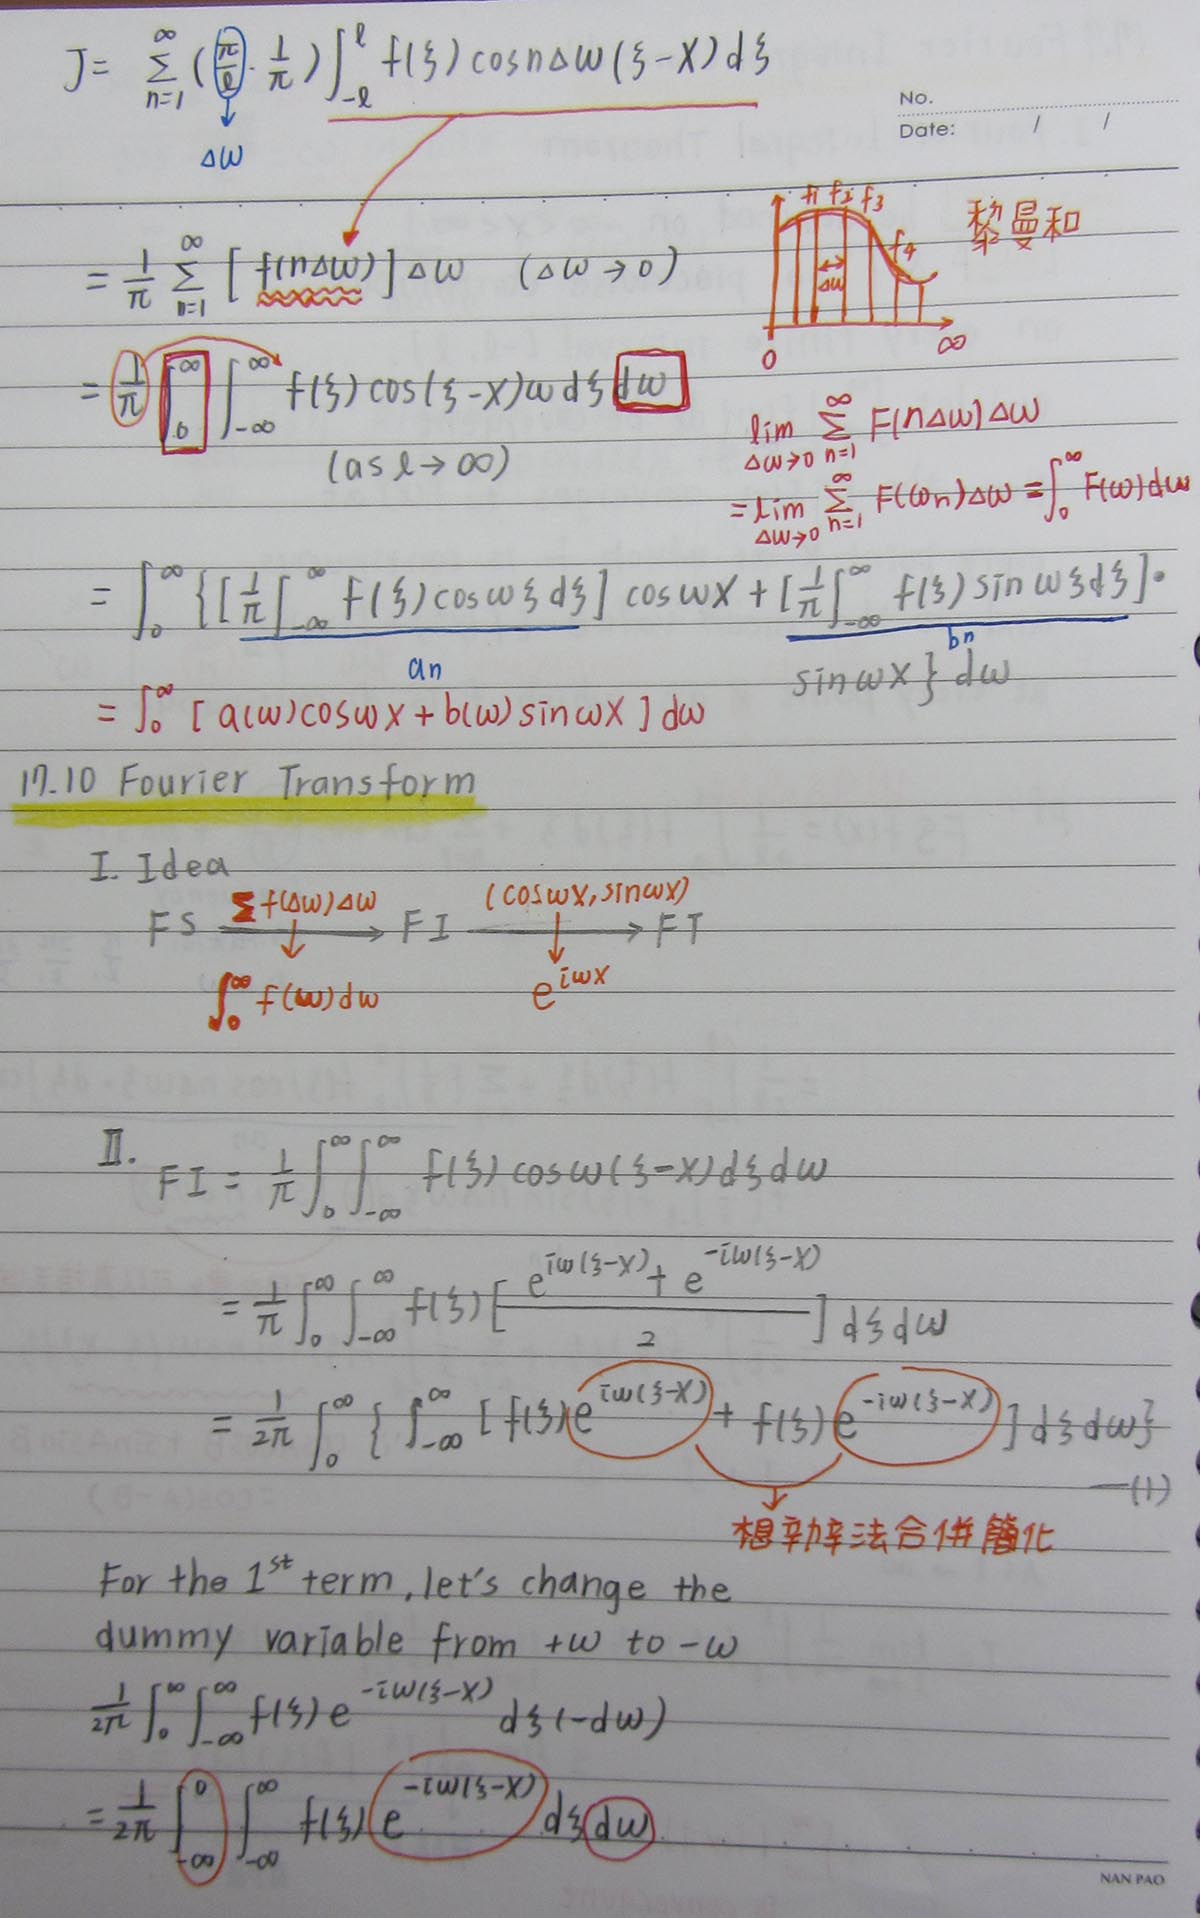 J = ∑_{n=1}^{∞} (π/ℓ · 1/π) ∫_{-ℓ}^{ℓ} f(ξ) cos nΔω(ξ-x)dξ
Δω
No.
Date: / /
= 1/π ∑_{n=1}^{∞} [f(nΔω)]Δω (Δω→0)
f1 f2 f3 f4
Δω
0 ∞
黎曼和
= 1/π ∫_0^∞ ∫_{-∞}^{∞} f(ξ) cos(ξ-x)ω dξ dω
(as ℓ→∞)
lim_{Δω→0} ∑_{n=1}^{∞} F(nΔω)Δω
= lim_{Δω→0} ∑_{n=1}^{∞} F(ωn)Δω = ∫_0^∞ F(ω)dω
= ∫_0^∞ {[1/π ∫_{-∞}^{∞} f(ξ)cosωξdξ] cosωx + [1/π ∫_{-∞}^{∞} f(ξ)sinωξdξ]·
an bn
sinωx} dω
= ∫_0^∞ [a(ω)cosωx + b(ω)sinωx]dω
17.10 Fourier Transform
I. Idea
FS → FI → FT
∑f(Δω)Δω (cosωx, sinωx)
∫_0^∞ f(ω)dω e^{iωx}
II.
FI = 1/π ∫_0^∞ ∫_{-∞}^{∞} f(ξ) cosω(ξ-x)dξdω
= 1/π ∫_0^∞ ∫_{-∞}^{∞} f(ξ) [(e^{iω(ξ-x)} + e^{-iω(ξ-x)})/2] dξdω
= 1/2π ∫_0^∞ {∫_{-∞}^{∞} [f(ξ)e^{iω(ξ-x)} + f(ξ)e^{-iω(ξ-x)}]dξdω}
—(1)
想辦法合併簡化
For the 1st term, let's change the
dummy variable from +ω to -ω
1/2π ∫_0^∞ ∫_{-∞}^{∞} f(ξ)e^{-iω(ξ-x)} dξ(-dω)
= 1/2π ∫_{-∞}^0 ∫_{-∞}^{∞} f(ξ)e^{-iω(ξ-x)} dξdω
NAN PAO